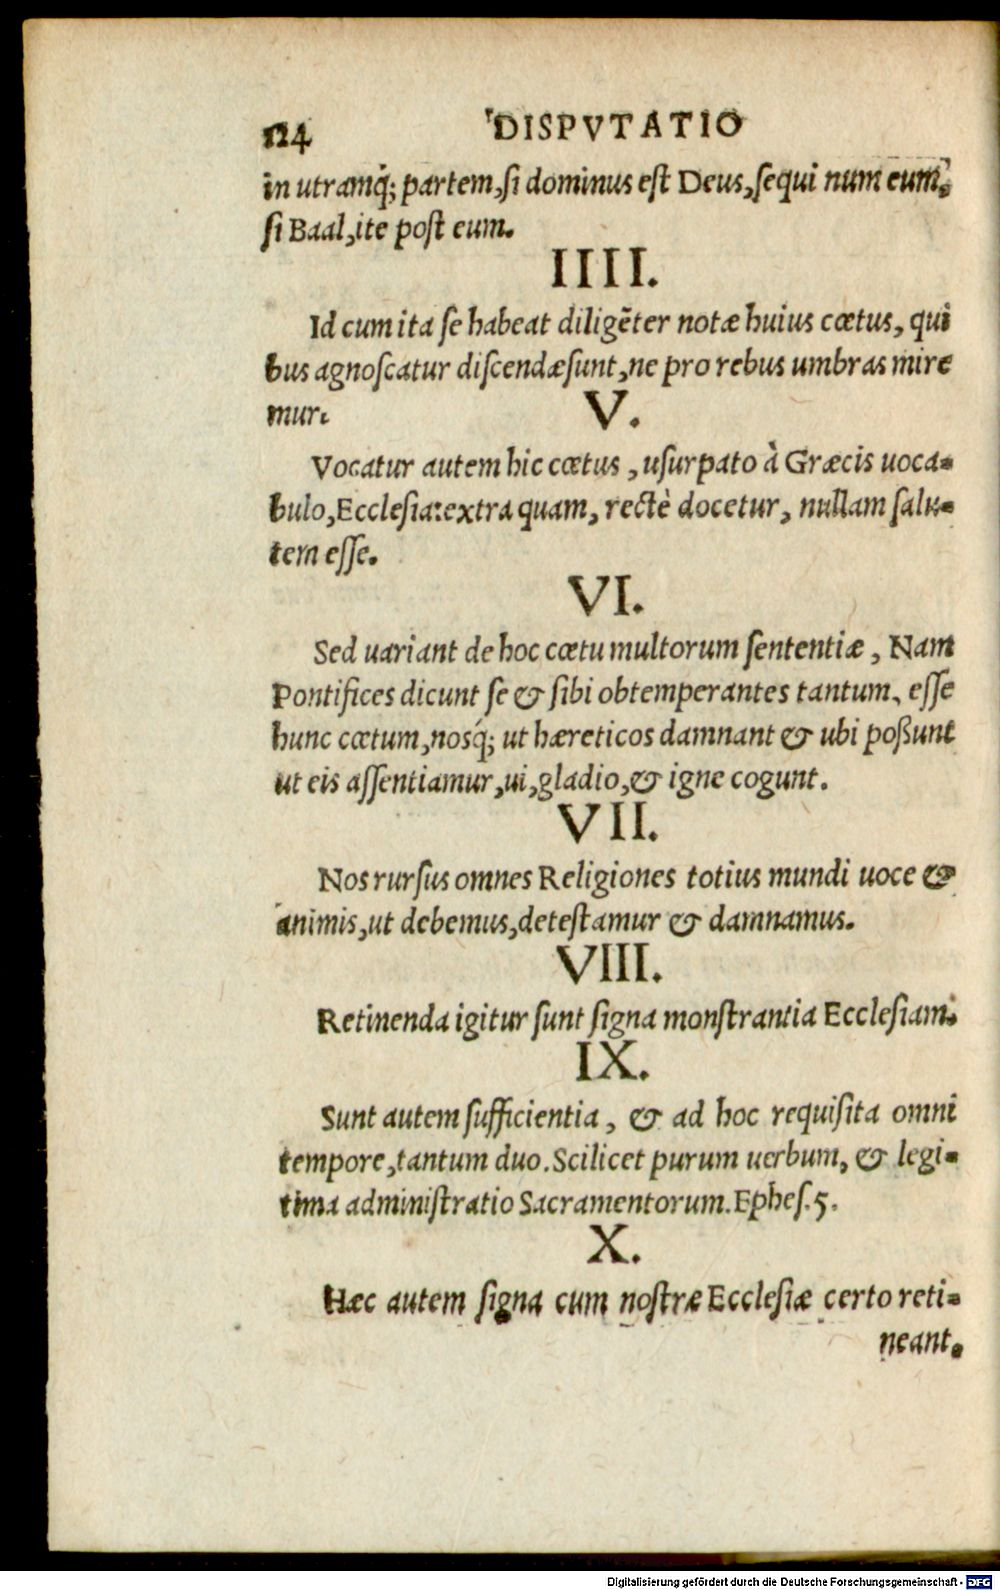 124 DISPVTATIO
in utramq́; partem, si dominus est Deus, sequi num eum,
si Baal, ite post eum.
IIII.
Id cum ita se habeat diligẽter notæ huius cœtus, qui
bus agnoscatur discendæ sunt, ne pro rebus umbras mire
mur.
V.
Vocatur autem hic cœtus, usurpato à Græcis uoca-
bulo, Ecclesia: extra quam, rectè docetur, nullam salu-
tem esse.
VI.
Sed uariant de hoc cœtu multorum sententiæ, Nam
Pontifices dicunt se & sibi obtemperantes tantum, esse
hunc cœtum, nosq́; ut hæreticos damnant & ubi possunt
ut eis assentiamur, ui, gladio, & igne cogunt.
VII.
Nos rursus omnes Religiones totius mundi uoce &
animis, ut debemus, detestamur & damnamus.
VIII.
Retinenda igitur sunt signa monstrantia Ecclesiam.
IX.
Sunt autem sufficientia, & ad hoc requisita omni
tempore, tantum duo. Scilicet purum uerbum, & legi-
tima administratio Sacramentorum. Ephes. 5.
X.
Hæc autem signa cum nostræ Ecclesiæ certo reti-
neant,
Digitalisierung gefördert durch die Deutsche Forschungsgemeinschaft - DFG